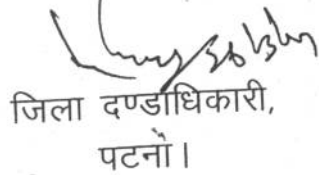 जिला दण्डाधिकारी,
पटना।